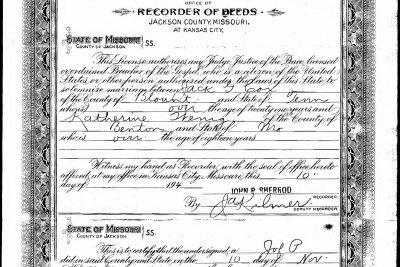 OFFICE OF
RECORDER OF DEEDS
JACKSON COUNTY, MISSOURI,
AT KANSAS CITY,
STATE OF MISSOURI
COUNTY OF JACKSON, SS.
This License authorizes any Judge Justice of the Peace, licensed
or ordained Preacher of the Gospel, who is a citizen of the United
States or other person authorized under the laws of this State to
solemnize marriage between Jack T. Cox
of the County of Blount and State of Tenn
who is over the age of twenty one years and
Katherine of the County of
Benton and State of Mo
who is over the age of eighteen years
Witness my hand as Recorder, with the seal of office hereto
affixed, at my office in Kansas City, Missouri, this 10
day of 194
JOHN P. SHERROD
RECORDER
By J A Kilmer
DEPUTY RECORDER
STATE OF MISSOURI
COUNTY OF JACKSON SS.
This is to certify that the undersigned, a
did in said County and State, on the 10 day of Nov.